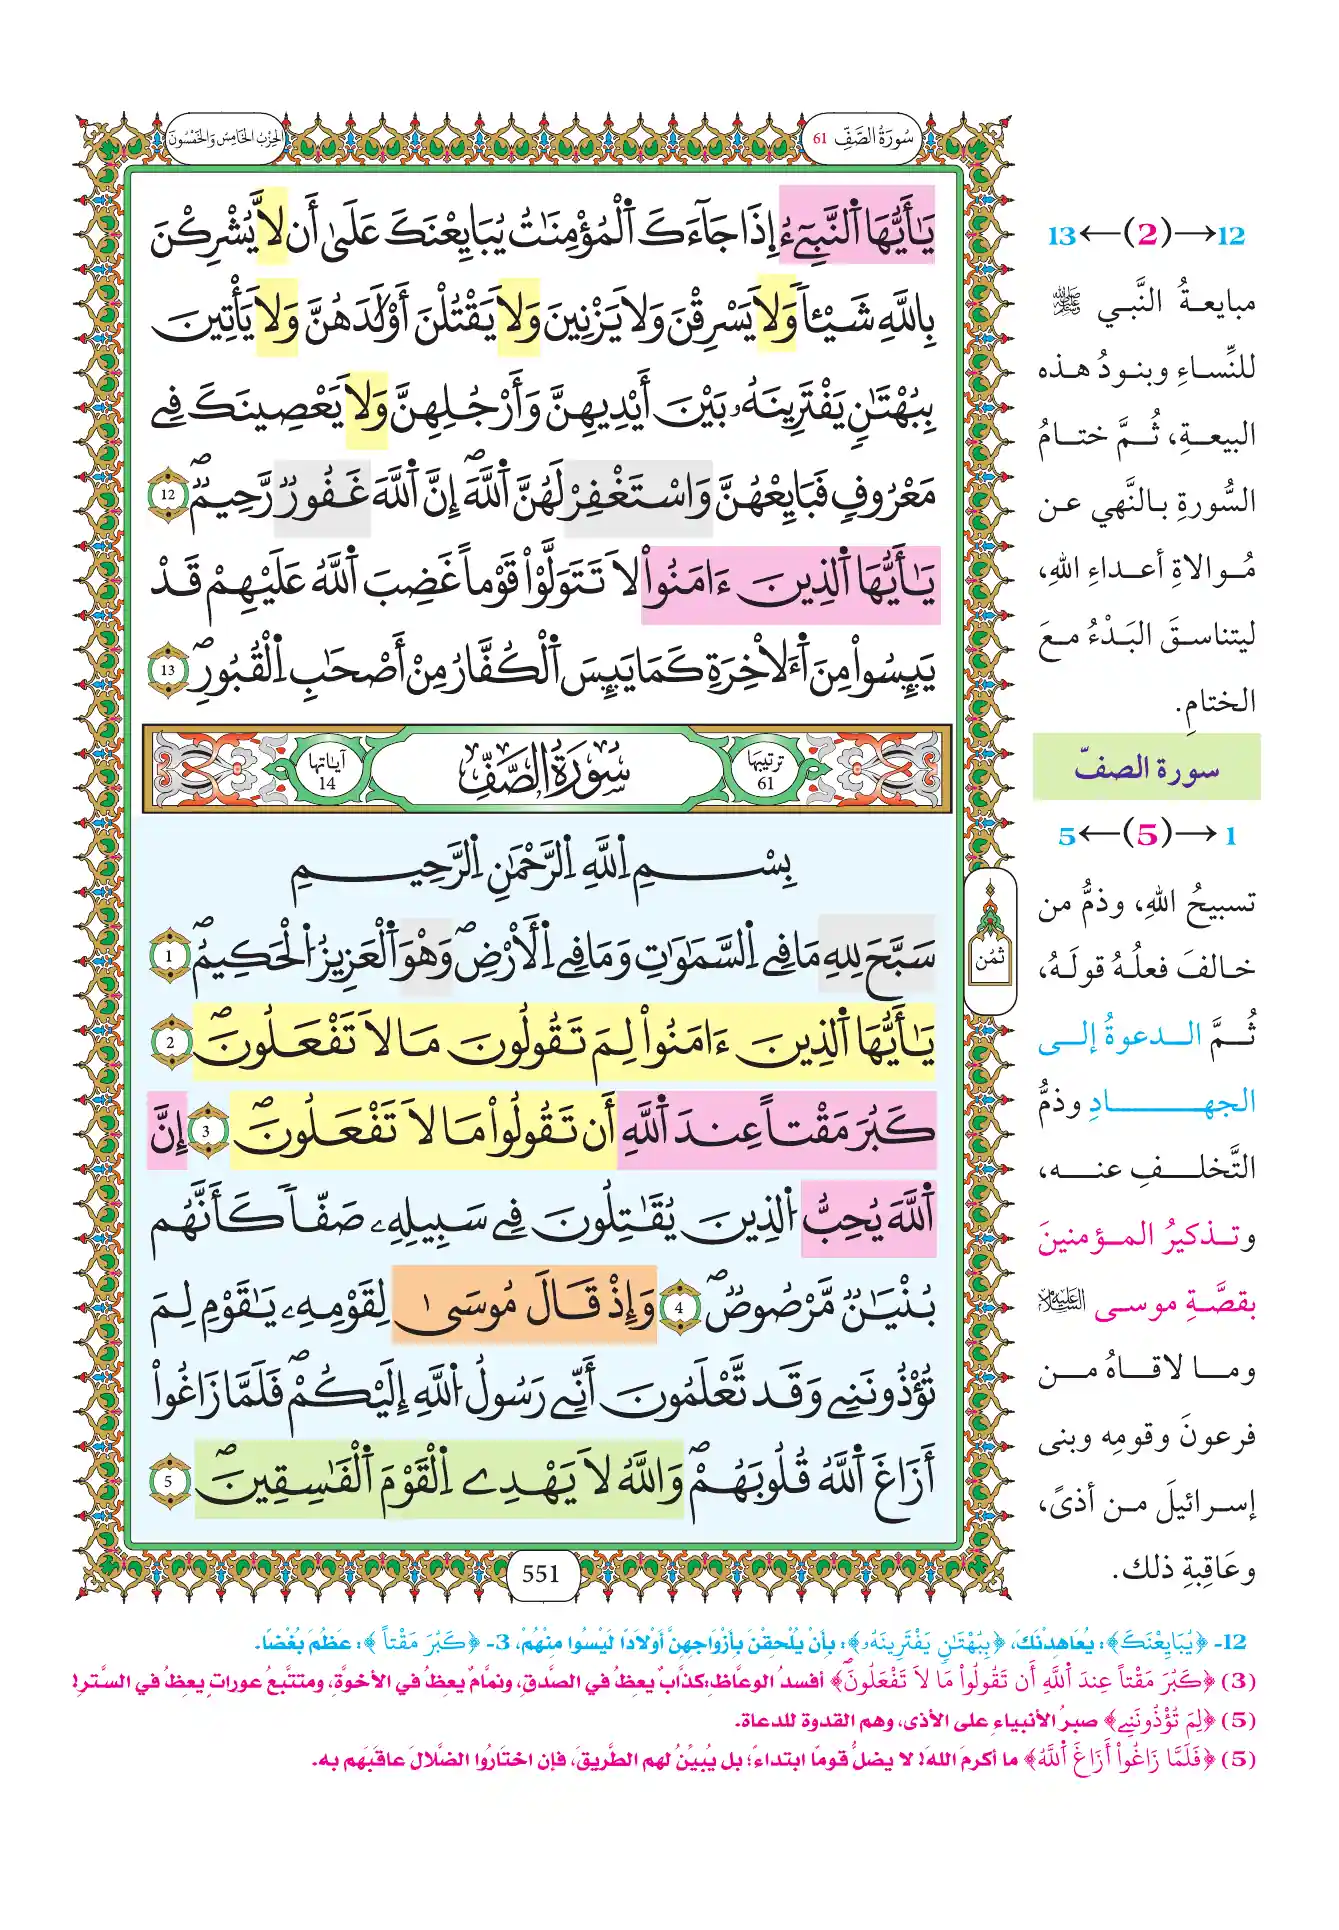 سُورَةُ الصَّفِّ 61
الحِزْبُ الخَامِسُ وَالخَمْسُونَ
يَٰأَيُّهَا اَ۬لنَّبِےٓءُ اِ۪ذَا جَآءَكَ اَ۬لْمُؤْمِنَٰتُ يُبَايِعْنَكَ عَلَىٰٓ أَن لَّا يُشْرِكْنَ
بِاللَّهِ شَيْـٔاً وَلَا يَسْرِقْنَ وَلَا يَزْنِينَ وَلَا يَقْتُلْنَ أَوْلَٰدَهُنَّ وَلَا يَأْتِينَ
بِبُهْتَٰنٍ يَفْتَرِينَهُۥ بَيْنَ أَيْدِيهِنَّ وَأَرْجُلِهِنَّ وَلَا يَعْصِينَكَ فِے
مَعْرُوفٍ فَبَايِعْهُنَّ وَاسْتَغْفِرْ لَهُنَّ اَ۬للَّهَۖ إِنَّ اَ۬للَّهَ غَفُورٌ رَّحِيمٌۖ 12
يَٰأَيُّهَا اَ۬لذِينَ ءَامَنُواْ لَا تَتَوَلَّوْاْ قَوْماً غَضِبَ اَ۬للَّهُ عَلَيْهِمْ قَدْ
يَئِسُواْ مِنَ اَ۬لَاخِرَةِ كَمَا يَئِسَ اَ۬لْكُفَّارُ مِنْ أَصْحَٰبِ اِ۬لْقُبُورِۖ 13
ترتيبها 61
سُورَةُ الصَّفِّ
آياتها 14
بِسْمِ اِ۬للَّهِ اِ۬لرَّحْمَٰنِ اِ۬لرَّحِيمِ
سَبَّحَ لِلهِ مَا فِے اِ۬لسَّمَٰوَٰتِ وَمَا فِے اِ۬لْأَرْضِۖ وَهْوَ اَ۬لْعَزِيزُ اُ۬لْحَكِيمُۖ 1
يَٰأَيُّهَا اَ۬لذِينَ ءَامَنُواْ لِمَ تَقُولُونَ مَا لَا تَفْعَلُونَۖ 2
كَبُرَ مَقْتاً عِندَ اَ۬للَّهِ أَن تَقُولُواْ مَا لَا تَفْعَلُونَۖ 3 إِنَّ
اَ۬للَّهَ يُحِبُّ اُ۬لذِينَ يُقَٰتِلُونَ فِے سَبِيلِهِۦ صَفّاً كَأَنَّهُم
بُنْيَٰنٌ مَّرْصُوصٌۖ 4 وَإِذْ قَالَ مُوسَىٰ لِقَوْمِهِۦ يَٰقَوْمِ لِمَ
تُؤْذُونَنِے وَقَد تَّعْلَمُونَ أَنِّے رَسُولُ اُ۬للَّهِ إِلَيْكُمْۖ فَلَمَّا زَاغُواْ
أَزَاغَ اَ۬للَّهُ قُلُوبَهُمْۖ وَاللَّهُ لَا يَهْدِے اِ۬لْقَوْمَ اَ۬لْفَٰسِقِينَۖ 5
ثُمُن
551
12→(2)←13
مبايعةُ النَّبي ﷺ
للنِّساءِ وبنودُ هذه
البيعةِ، ثُمَّ ختامُ
السُّورةِ بالنَّهي عن
مُوالاةِ أعداءِ اللهِ،
ليتناسقَ البَدْءُ معَ
الختامِ.
سورة الصفّ
1→(5)←5
تسبيحُ اللهِ، وذمُّ من
خالفَ فعلُهُ قولَهُ،
ثُمَّ الدعوةُ إلى
الجهادِ وذمُّ
التَّخلفِ عنه،
وتذكيرُ المؤمنينَ
بقصَّةِ موسى عليه السلام
وما لاقاهُ من
فرعونَ وقومِه وبنى
إسرائيلَ من أذىً،
وعَاقِبةِ ذلك.
12- ﴿يُبَايِعْنَكَ﴾: يُعَاهِدْنَكَ، ﴿بِبُهْتَٰنٍ يَفْتَرِينَهُۥ﴾: بِأَنْ يُلْحِقْنَ بِأَزْوَاجِهِنَّ أَوْلَادًا لَيْسُوا مِنْهُمْ، 3- ﴿كَبُرَ مَقْتاً﴾: عَظُمَ بُغْضًا.
(3) ﴿كَبُرَ مَقْتاً عِندَ اَ۬للَّهِ أَن تَقُولُواْ مَا لَا تَفْعَلُونَۖ﴾ أفسدُ الوعاَّظِ:كذَّابٌ يعظُ في الصِّدقِ، ونمَّامٌ يعظُ في الأخوَّةِ، ومتتبَّعُ عوراتٍ يعظُ في السَّترِ!
(5) ﴿لِمَ تُؤْذُونَنِے﴾ صبرُ الأنبياءِ على الأذى، وهم القدوة للدعاة.
(5) ﴿فَلَمَّا زَاغُواْ أَزَاغَ اَ۬للَّهُ﴾ ما أكرمَ اللهَ! لا يضلُّ قومًا ابتداءً؛ بل يُبيِّنُ لهم الطَّريقَ، فإن اختَارُوا الضَّلالَ عاقبَهم به.